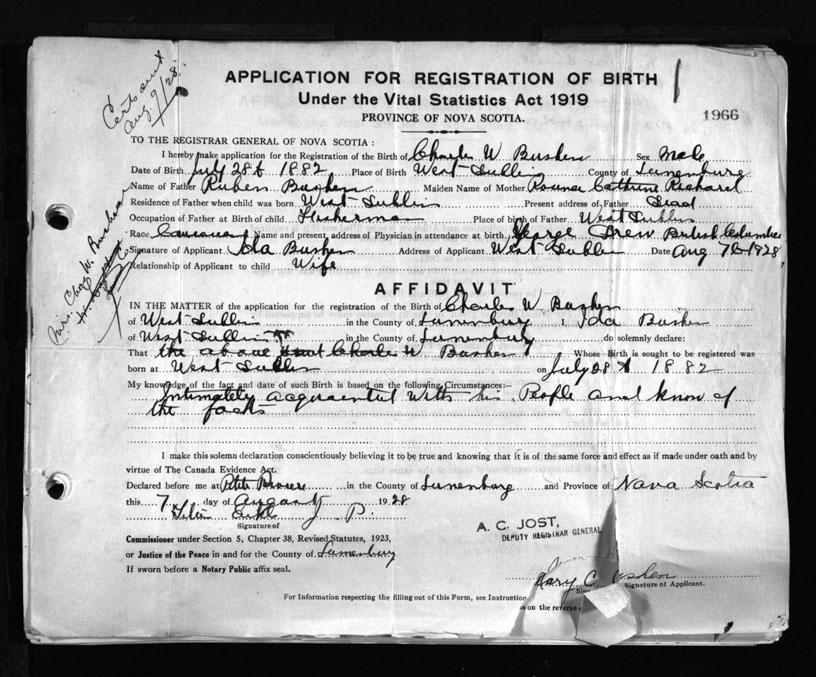 Cert sent
Aug. 9/28.
APPLICATION FOR REGISTRATION OF BIRTH
Under the Vital Statistics Act 1919
1966
PROVINCE OF NOVA SCOTIA.
TO THE REGISTRAR GENERAL OF NOVA SCOTIA :
I hereby make application for the Registration of the Birth of Charles W Bushen Sex Male
Date of Birth July 28th 1882 Place of Birth West Dublin County of Lunenburg
Name of Father Ruben Bushen Maiden Name of Mother Catherine Richard
Residence of Father when child was born West Dublin Present address of Father Dead
Occupation of Father at Birth of child Fisherman Place of birth of Father West Dublin
Race Name and present address of Physician in attendance at birth, George Drew British Columbia
Signature of Applicant Ida Bushen Address of Applicant West Dublin Date Aug 7th 1928
Relationship of Applicant to child Wife
Mrs. Chas W. Bushen
AFFIDAVIT
IN THE MATTER of the application for the registration of the Birth of Charles W Bushen
of West Dublin in the County of Lunenburg I, Ida Bushen
of West Dublin in the County of Lunenburg do solemnly declare:
That the above Charles W Bushen Whose Birth is sought to be registered was
born at West Dublin on July 28th 1882
My knowledge of the fact and date of such Birth is based on the following Circumstances:—
Intimately acquainted With his People and know of
the facts
I make this solemn declaration conscientiously believing it to be true and knowing that it is of the same force and effect as if made under oath and by
virtue of The Canada Evidence Act.
Declared before me at Petite Riviere in the County of Lunenburg and Province of Nova Scotia
this 7 day of August 1928
J. P.
Signature of
A. C. JOST,
DEPUTY REGISTRAR GENERAL
Commissioner under Section 5, Chapter 38, Revised Statutes, 1923,
or Justice of the Peace in and for the County of Lunenburg
If sworn before a Notary Public affix seal.
Signature of Applicant.
For Information respecting the filling out of this Form, see Instruction
s on the reverse